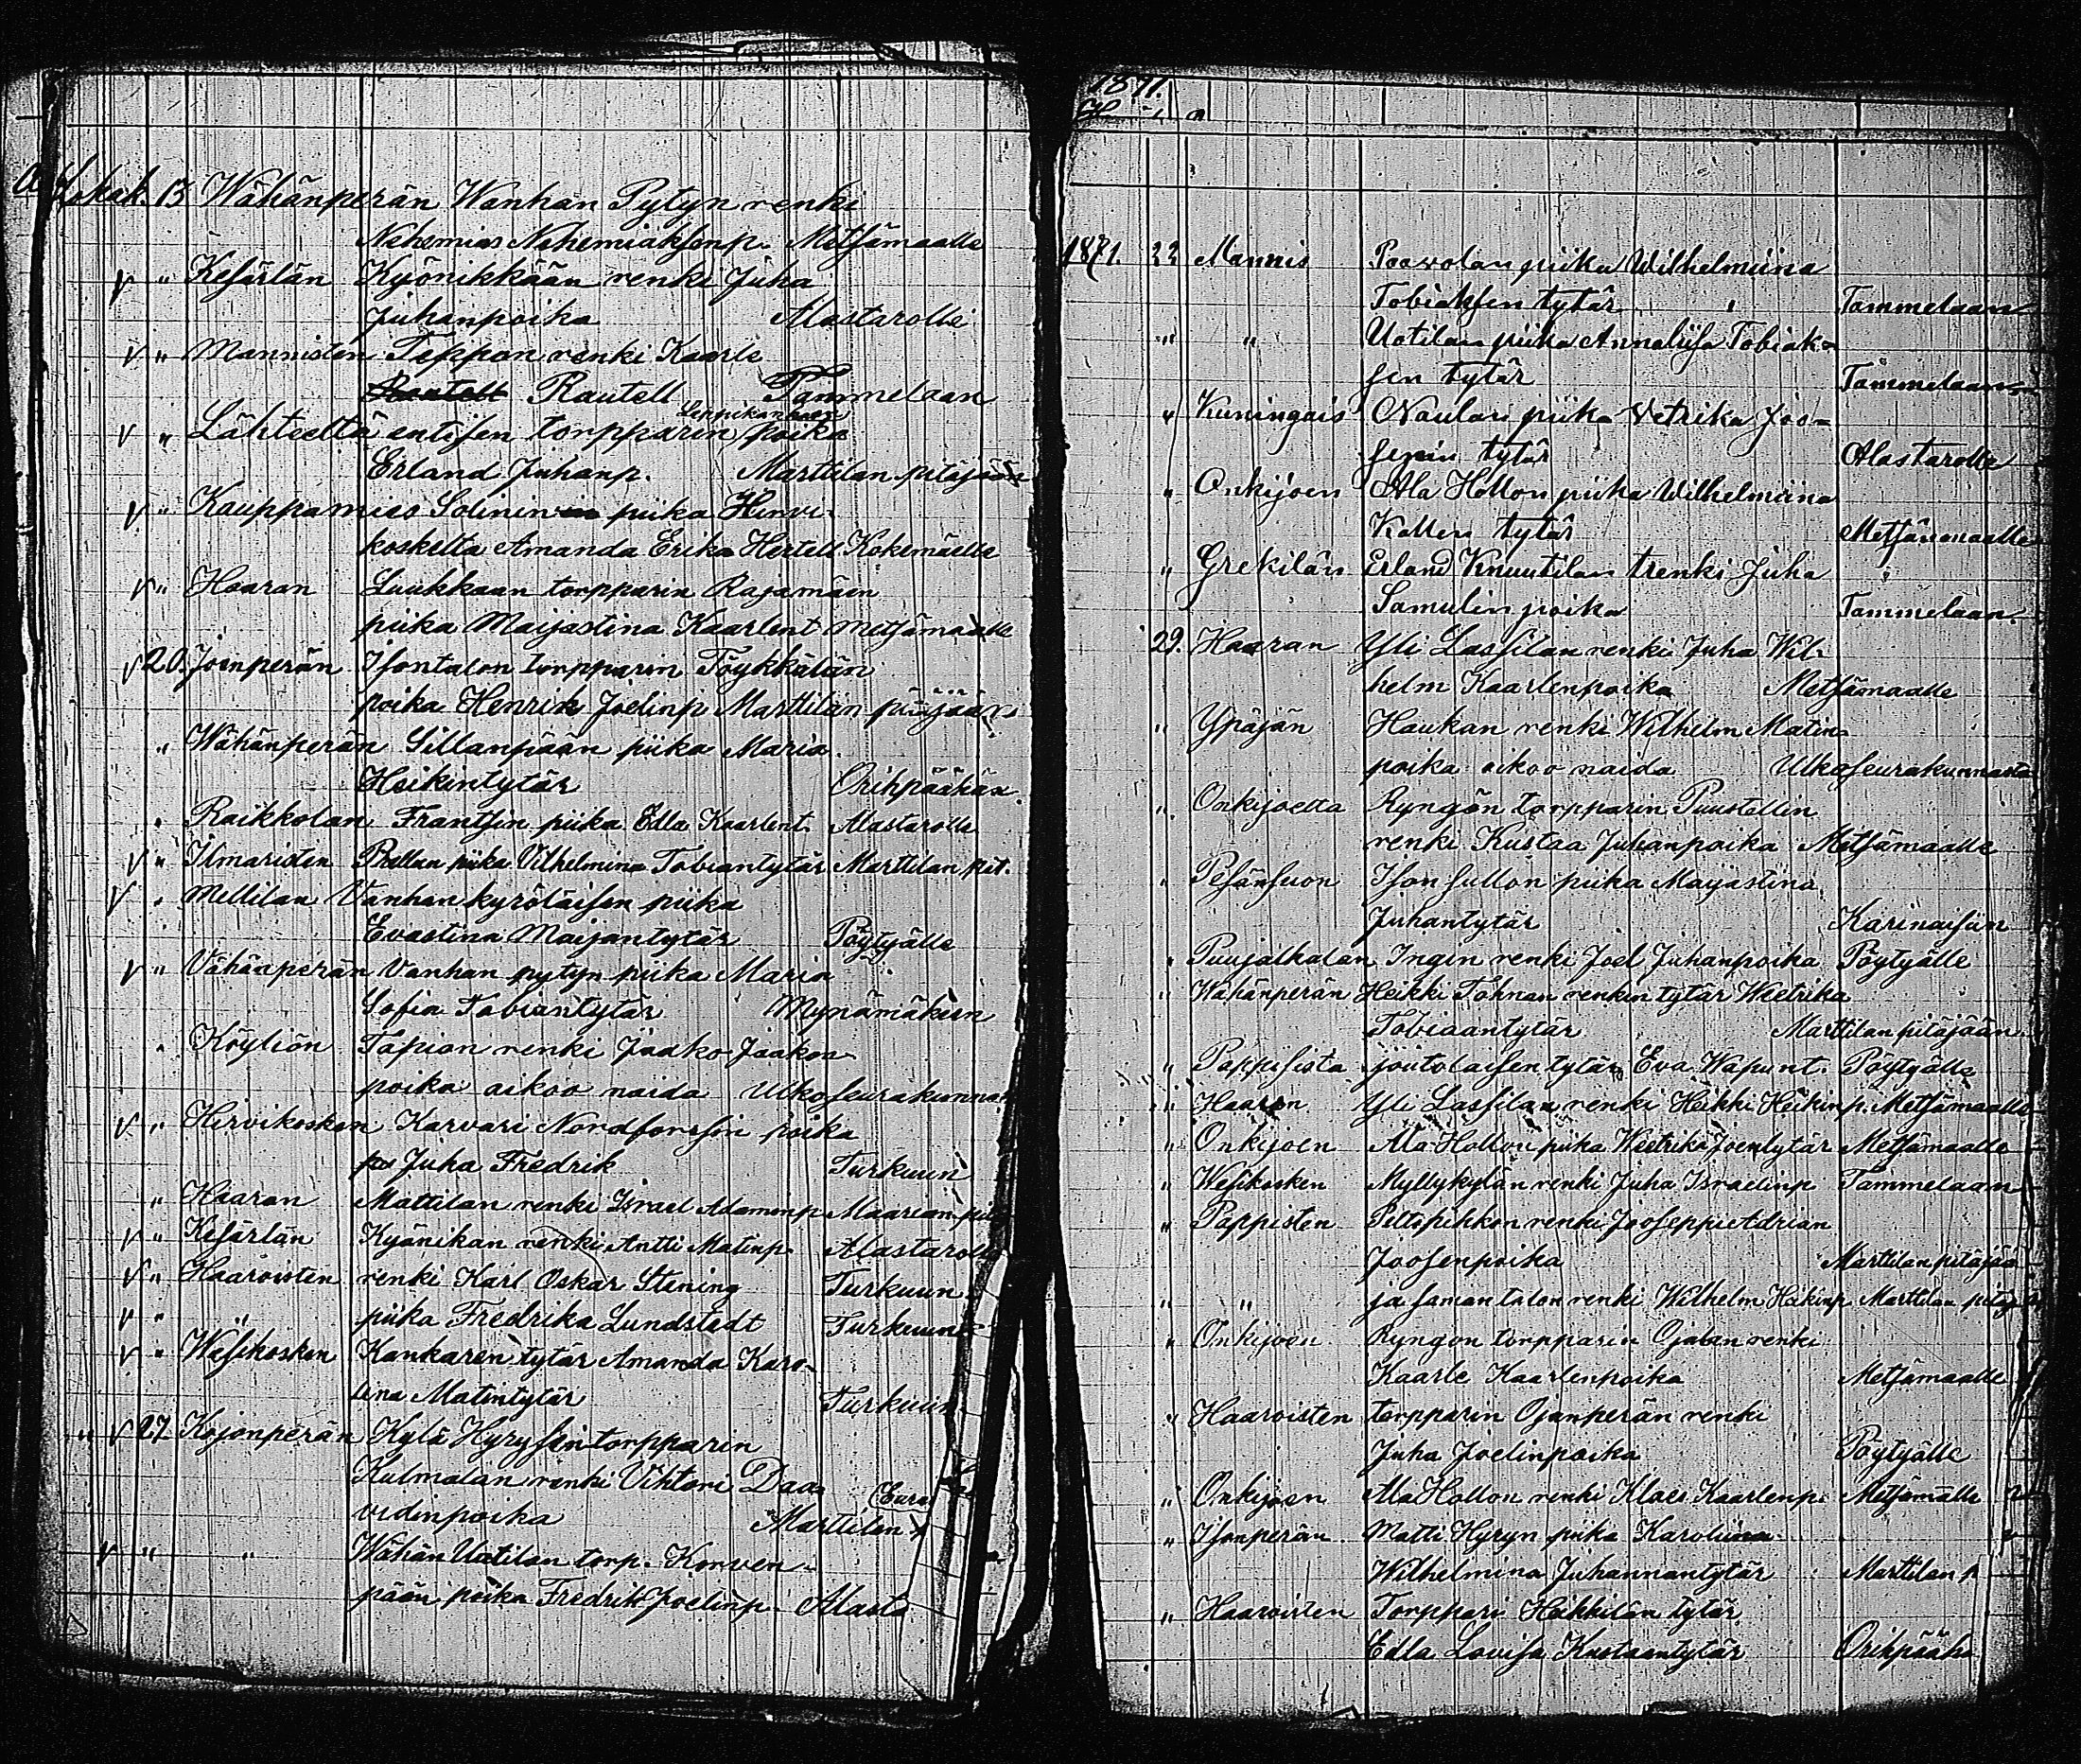 Lokak. 13 Wähänperän Wanhan Pytyn renki
Nehemias Nehemiaksenp. Metsämaalle
" Kesärlän Kyönikkään renki Juha
Juhanpoika Alastarolle
" Mannisten Teppon renki Kaarle
Rautell Rautell Tammelaan
" Lähteeltä entisen torpparin poika
Erland Juhanp. Marttilan pitäjään
" Kauppamies Solinin piika Hirvi-
koskelta Amanda Erika Hertell Kokemäelle
" Haaran Luukkaan torpparin Rajamäen
piika Maijastina Kaarlent Metsämaalle
20. Joenperän Isontalon torpparin Töykkälän
poika Henrik Joelinp Marttilan pitäjään
" Wähänperän Sillanpään piika Maria
Heikintytär Orihpäähän
" Raikkolan Frantsin piika Edla Kaarlent. Alastarolle
" Ilmaristen Prellan piika Vilhelmina Tobiantytär Marttilan pit.
" Mellilan Vanhankyröläisen piika
Evastina Maijantytär Pöytyälle
" Vähänperän Vanhan pytyn piika Maria
Sofia Tobiantytär Mynämäkiin
" Köyliön Tapion renki Jaakko Jaakon
poika aikoo naida Ulkoseurakunnan
" Hirvikosken Karvari Nordforssin poika
Juha Fredrik Turkuun
" Haaran Mattilan renki Israel Adaminp Maarian pitä
" Kesärlän Kyänikan renki Antti Matinp. Alastarolle
" Haaroisten renki Karl Oskar Stening Turkuun
" " piika Fredrika Lundstedt Turkuun
" Wesikosken Kankaren tytär Amanda Karo-
lina Matintytär Turkuun
27 Kojonperän Kylä Hyrysin torpparin
Kulmalan renki Vihtori Daa
vidinpoika Marttilan
" " Wähän Uotilan torp. Korven-
pään poika Fredrik Joelinp. Alasta
1871.
1871. 22 Mannis Paavolan piika Wilhelmiina
Tobiaksen tytär Tammelaan
" " Uotilan piika Annaliisa Tobiak-
sen tytär Tammelaan
" Kuningais Naulan piika Vetrika Joo-
sepin tytär Alastarolle
" Onkijoen Ala Hollon piika Wilhelmiina
Kallen tytär Metsämaalle
" Grekilän Erland Knuutilan trenki Juha
Samulin poika Tammelaan.
29. Haaran Yli Lassilan renki Juha Wil-
helm Kaarlenpoika Metsämaalle
" Ypäjän Haukan renki Wilhelm Matin-
poika aikoo naida Ulkoseurakunnasta
" Onkijoelta Ryngön torpparin Puustellin
renki Kustaa Juhanpoika Metsämaalle
" Pesänsuon Isonsullon piika Maijastina
Juhantytär Karinaisiin
" Puujalkalan Ingin renki Joel Juhanpoika Pöytyälle
" Wähänperän Heikki Töhnan renkin tytär Weetrika
Tobiaantytär Marttilan pitäjään.
" Pappisista joutolaisen tytär Eva Wapunt. Pöytyälle
" Haaran Yli Lassilan renki Heikki Heikinp. Metsämaalle
" Onkijoen Ala Hollon piika Weetrika Joentytär Metsämaalle
" Wesikosken Myllykylän renki Juha Israelinp Tammelaan
" Pappisten Peltopihkon renki Jooseppi Adrian
Joosenpoika Marttilan pitäjää
" " ja saman talon renki Wilhelm Heikinp Marttilan pitäj
" Onkijoen Ryngön torpparin Ojalan renki
Kaarle Kaarlenpoika Metsämaalle
" Haaroisten torpparin Ojanperän renki
Juha Joelinpoika Pöytyälle
" Onkijoen Ala Hollon renki Klaes Kaarlenp. Metsämälle
" Isonperän Matti Hyryn piika Karoliina
Wilhelmina Juhannantytär Marttilan p
" Haaroisten Torppari Heikkilän tytär
Edla Lovisa Kustaantytär Orihpäähä